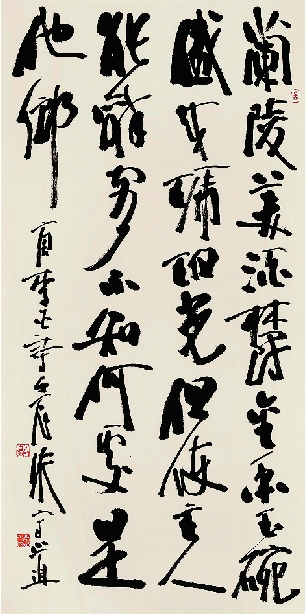 蘭陵美酒鬱金香玉碗
盛來琥珀光但使主人
能醉客不知何處是
他鄉 李白詩